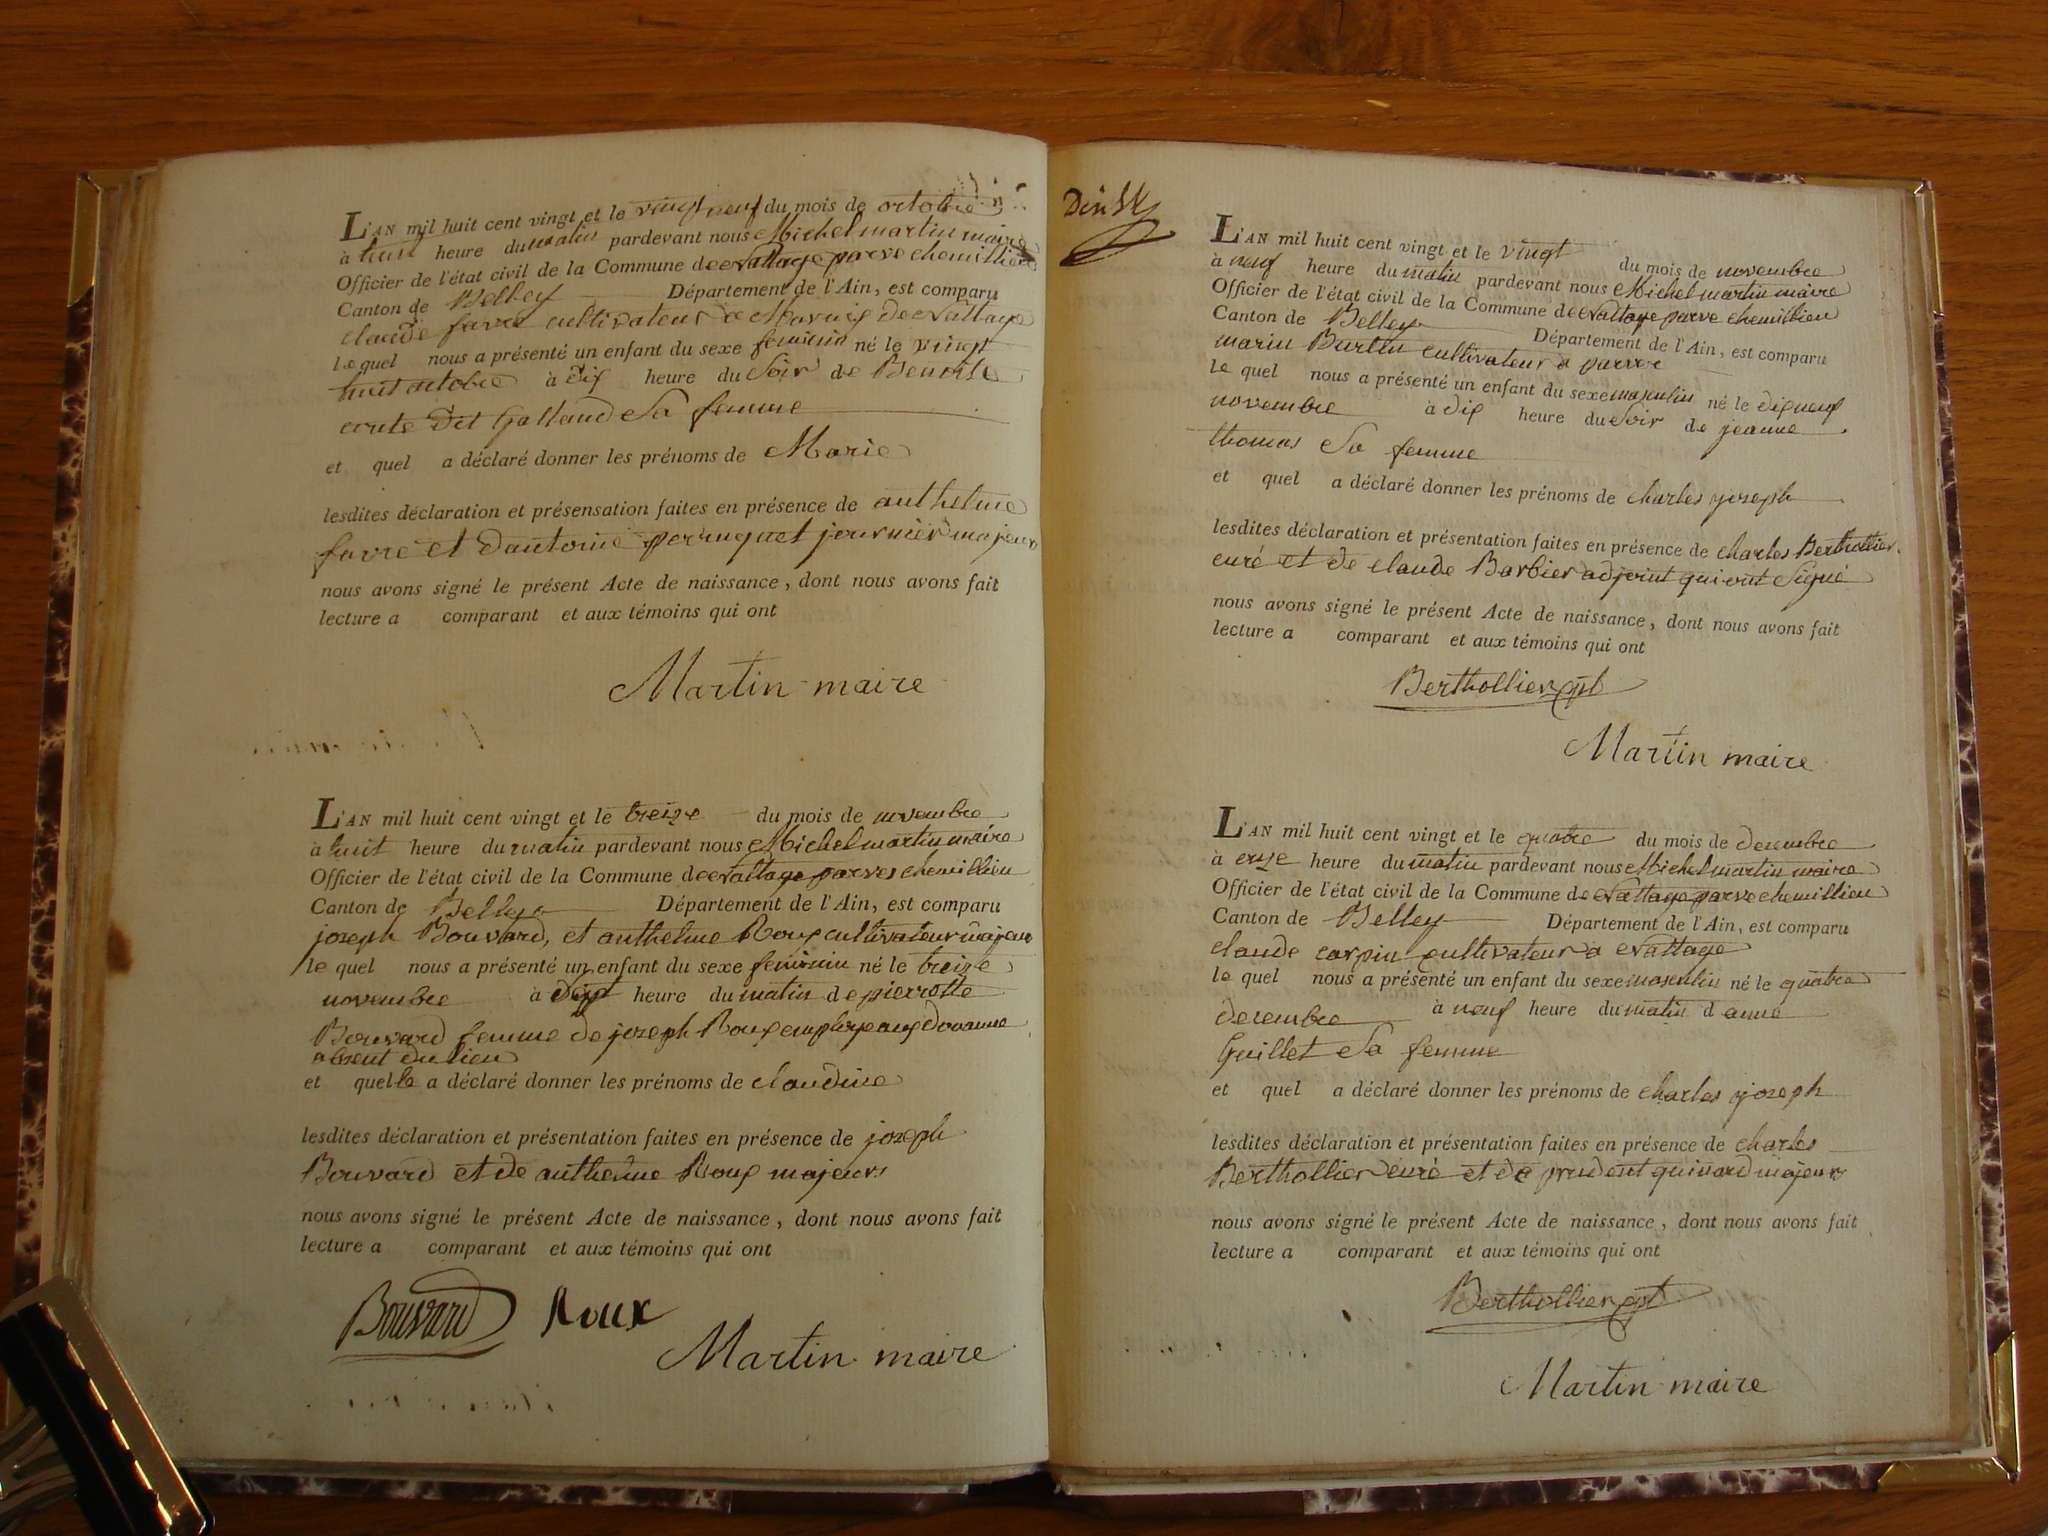 L'AN mil huit cent vingt et le vingt neuf du mois de octobre
à huit heure du matin pardevant nous Michel martin maire
Officier de l'état civil de la Commune de Nattage parve chemillieu
Canton de Belley Département de l'Ain, est comparu
claude favre cultivateur a de Nattage
le quel nous a présenté un enfant du sexe feminin né le vingt
huit octobre à dix heure du Soir de Benoite
dit Galland Sa femme
et quel a déclaré donner les prénoms de Marie
lesdites déclaration et présensation faites en présence de anthelme
favre et d'antoine perruquet journier majeurs
nous avons signé le présent Acte de naissance, dont nous avons fait
lecture a comparant et aux témoins qui ont
Martin maire
L'AN mil huit cent vingt et le treize du mois de novembre
à huit heure du matin pardevant nous Michel martin maire
Officier de l'état civil de la Commune de Nattage parves chemillieu
Canton de Belley Département de l'Ain, est comparu
joseph Bouvard, et anthelme Roux cultivateur majeurs
le quel nous a présenté un enfant du sexe feminin né le treize
novembre à Sept heure du matin de pierrotte
Bouvard femme de joseph Roux employe aux douanne
absent du lieu
et quelle a déclaré donner les prénoms de claudine
lesdites déclaration et présentation faites en présence de joseph
Bouvard et de anthelme Roux majeurs
nous avons signé le présent Acte de naissance, dont nous avons fait
lecture a comparant et aux témoins qui ont
Bouvard Roux
Martin maire
L'AN mil huit cent vingt et le vingt du mois de novembre
à neuf heure du matin pardevant nous Michel martin maire
Officier de l'état civil de la Commune de Nattage parve chemillieu
Canton de Belley Département de l'Ain, est comparu
marin Burtin cultivateur a parve
le quel nous a présenté un enfant du sexe masculin né le dix neuf
novembre à dix heure du Soir de jeanne
thomas Sa femme
et quel a déclaré donner les prénoms de charles joseph
lesdites déclaration et présentation faites en présence de charles Berthollier
curé et de claude Barbier adjoint qui ont Signé
nous avons signé le présent Acte de naissance, dont nous avons fait
lecture a comparant et aux témoins qui ont
Berthollier
Martin maire
L'AN mil huit cent vingt et le quatre du mois de decembre
à onze heure du matin pardevant nous Michel martin maire
Officier de l'état civil de la Commune de Nattage parve chemillieu
Canton de Belley Département de l'Ain, est comparu
claude carpin cultivateur a Nattage
le quel nous a présenté un enfant du sexe masculin né le quatre
decembre à neuf heure du matin d anne
Guillet Sa femme
et quel a déclaré donner les prénoms de charles joseph
lesdites déclaration et présentation faites en présence de charles
Berthollier curé et de prudent quinard majeurs
nous avons signé le présent Acte de naissance, dont nous avons fait
lecture a comparant et aux témoins qui ont
Berthollier
Martin maire